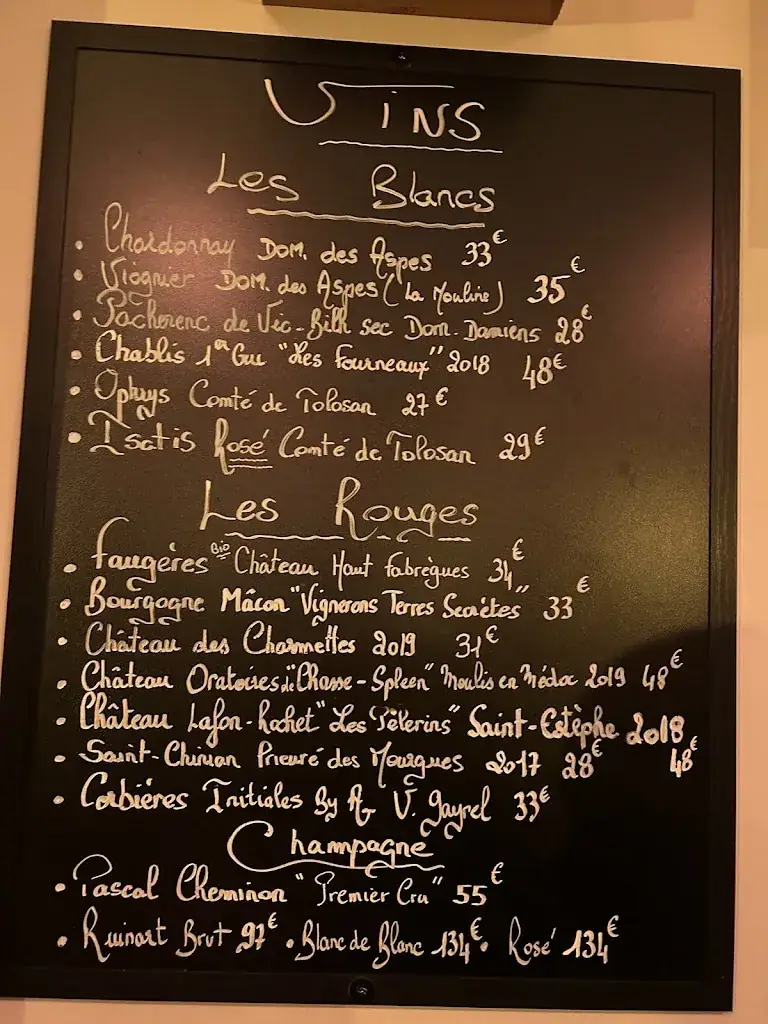 Vins
Les Blancs
• Chardonnay Dom. des Aspes 33€
• Viognier Dom. des Aspes (La Mouline) 35€
• Pacherenc de Vic-Bilh sec Dom. Damiens 28€
• Chablis 1er Cru "Les Fourneaux" 2018 48€
• Ophrys Comté de Tolosan 27€
• Isatis Rosé Comté de Tolosan 29€
Les Rouges
• Faugères Bio Château Haut Fabrègues 34€
• Bourgogne Mâcon "Vignerons Terres Secrètes" 33€
• Château des Charmettes 2019 31€
• Château Oratoires de "Chasse-Spleen" Moulis en Médoc 2019 48€
• Château Lafon-Rochet "Les Pèlerins" Saint-Estèphe 2018
• Saint-Chinian Prieuré des Mourgues 2017 28€ 48€
• Corbières Initiales By A. V. Gayrel 33€
Champagne
• Pascal Cheminon "Premier Cru" 55€
• Ruinart Brut 97€ • Blanc de Blanc 134€ • Rosé 134€